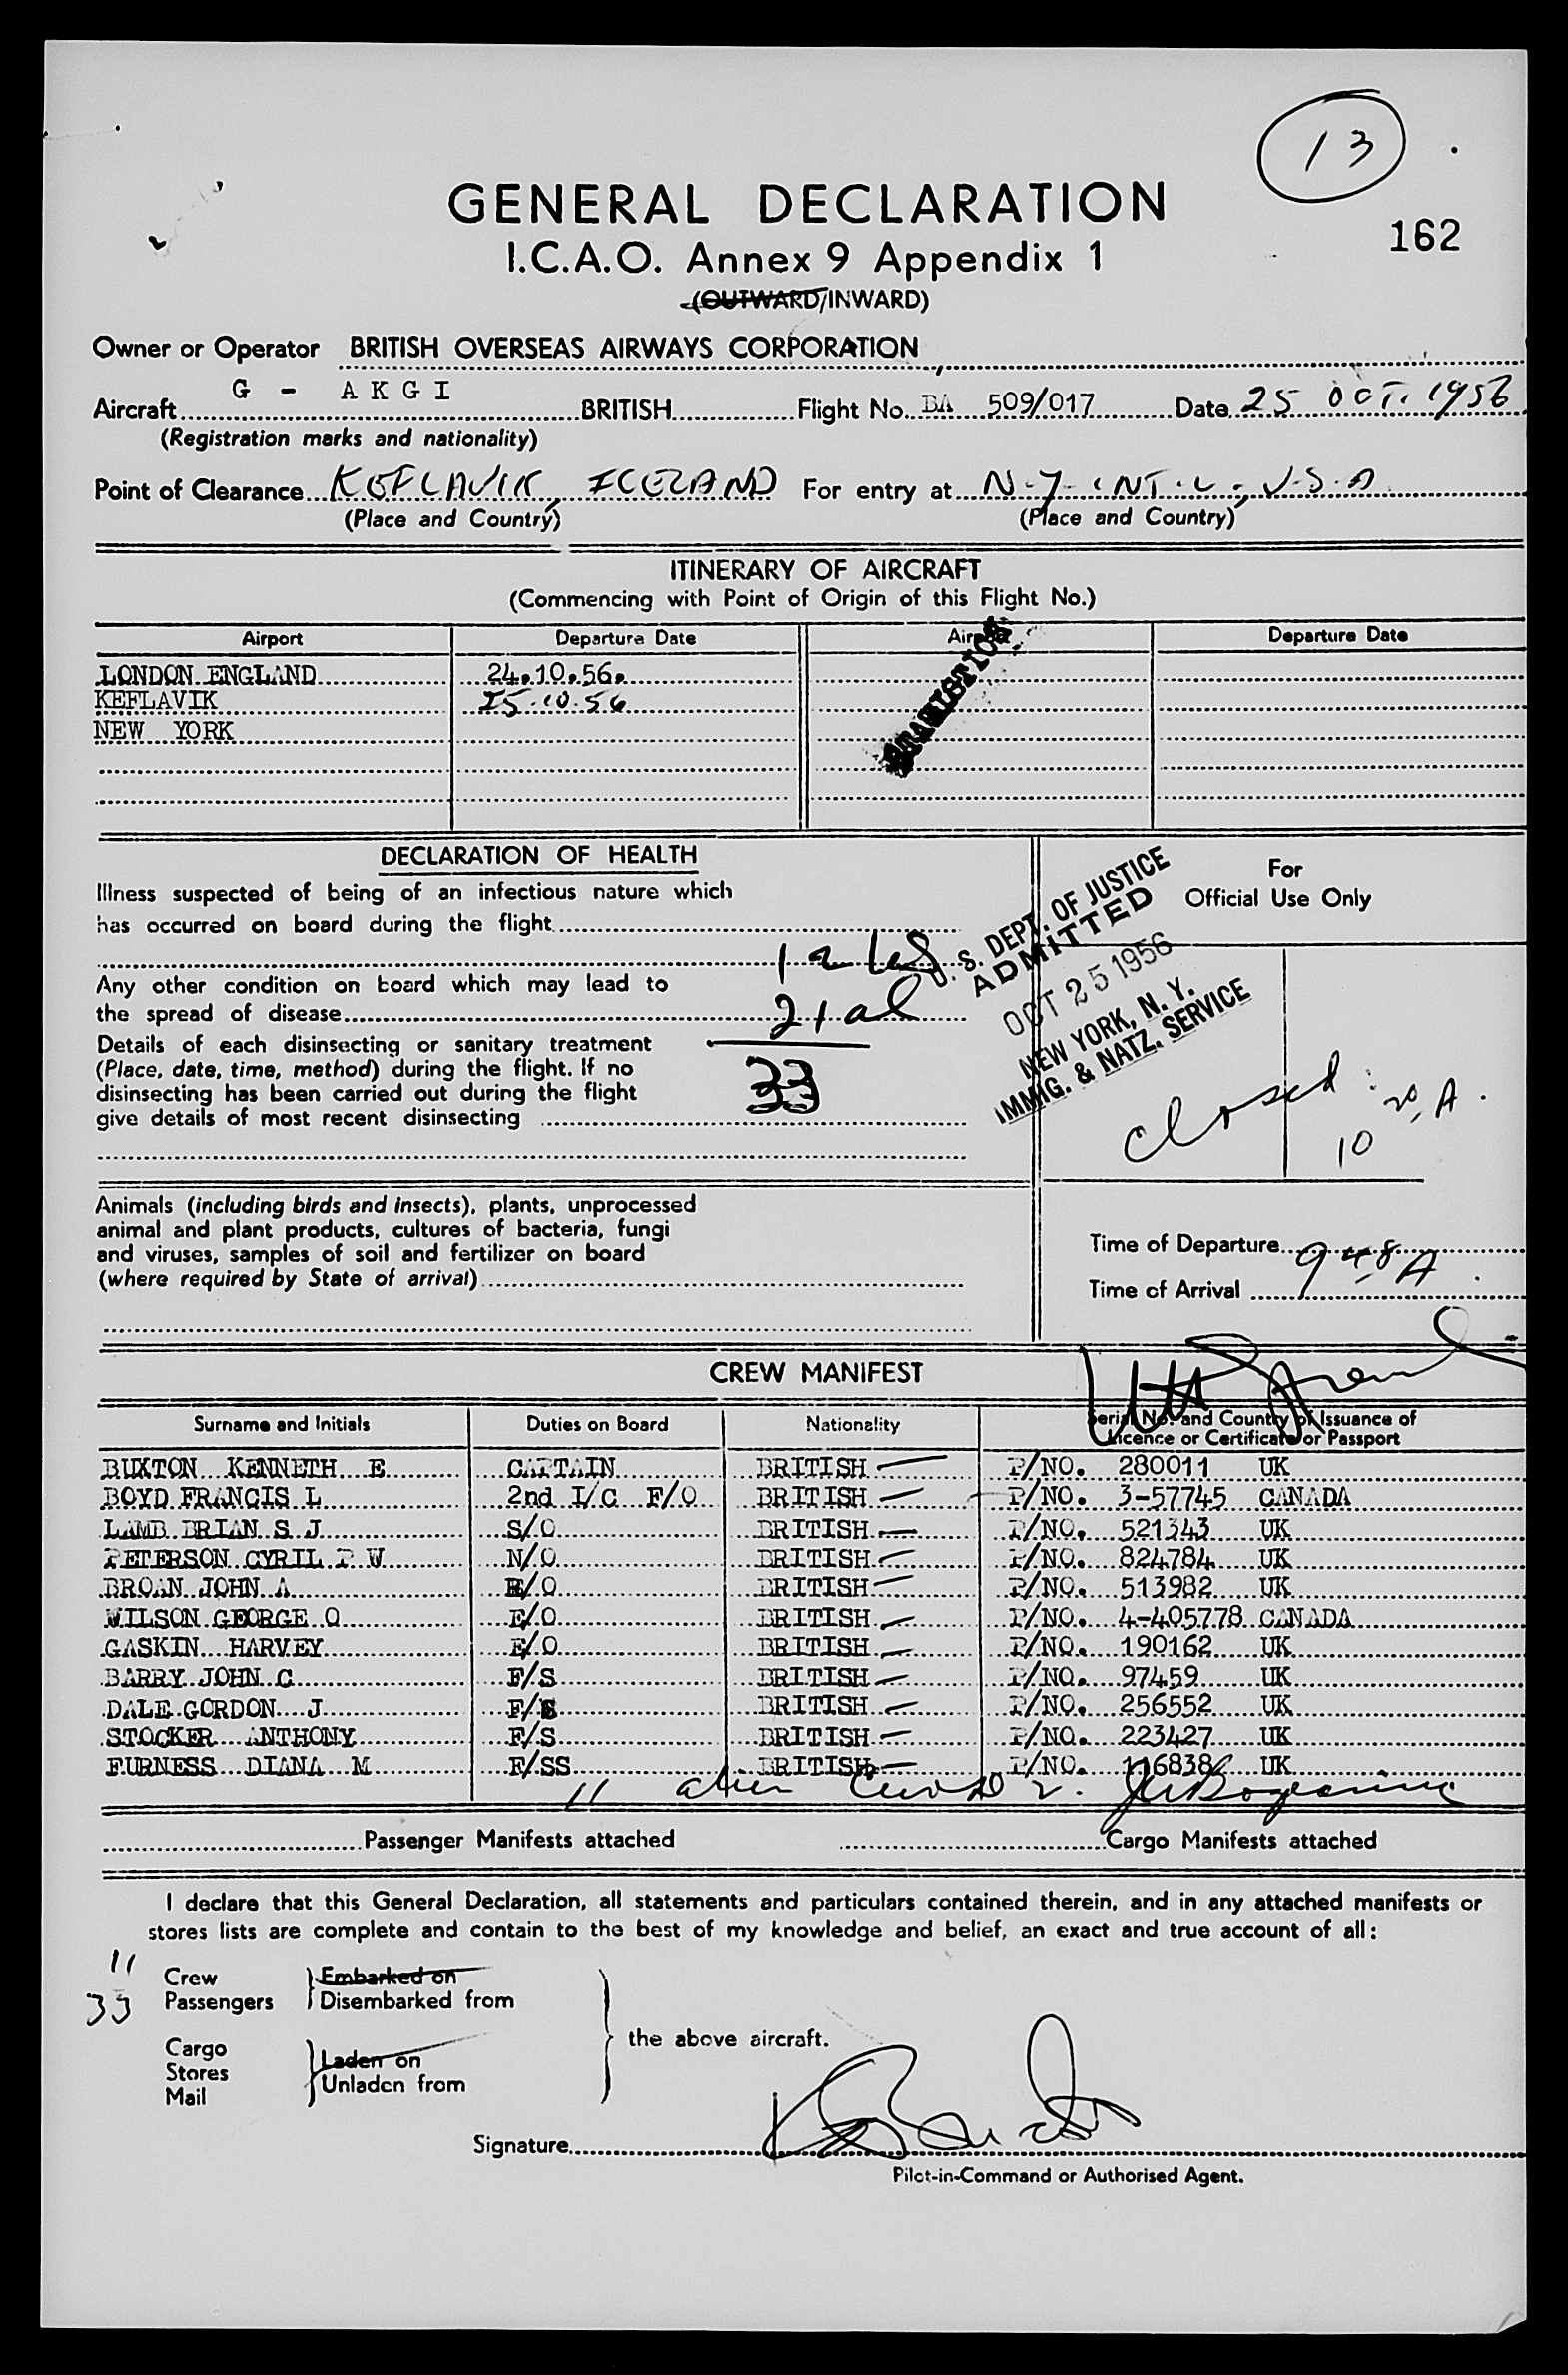 13
162
GENERAL DECLARATION
I.C.A.O. Annex 9 Appendix 1
(OUTWARD/INWARD)
Owner or Operator BRITISH OVERSEAS AIRWAYS CORPORATION
Aircraft G - AKGI BRITISH Flight No. BA 509/017 Date 25 OCT. 1956
(Registration marks and nationality)
Point of Clearance KEFLAVIK, ICELAND For entry at N.Y. INT.L., U.S.A.
(Place and Country) (Place and Country)
ITINERARY OF AIRCRAFT
(Commencing with Point of Origin of this Flight No.)
Airport Departure Date Airport Departure Date
LONDON ENGLAND 24.10.56.
KEFLAVIK 25.10.56
NEW YORK
DECLARATION OF HEALTH
For
Official Use Only
Illness suspected of being of an infectious nature which
has occurred on board during the flight
Any other condition on board which may lead to
the spread of disease
Details of each disinsecting or sanitary treatment
(Place, date, time, method) during the flight. If no
disinsecting has been carried out during the flight
give details of most recent disinsecting
21 al
33
U. S. DEPT. OF JUSTICE
ADMITTED
OCT 25 1956
NEW YORK, N. Y.
IMMIG. & NATZ. SERVICE
closed
10
Animals (including birds and insects), plants, unprocessed
animal and plant products, cultures of bacteria, fungi
and viruses, samples of soil and fertilizer on board
(where required by State of arrival)
Time of Departure
Time of Arrival 948A
CREW MANIFEST
Surname and Initials Duties on Board Nationality Serial No. and Country of Issuance of
Licence or Certificate or Passport
BUXTON KENNETH E CAPTAIN BRITISH P/NO. 280011 UK
BOYD FRANCIS L 2nd I/C F/O BRITISH P/NO. 3-57745 CANADA
LAMB BRIAN S J S/O BRITISH P/NO. 521343 UK
PETERSON CYRIL P W N/O BRITISH P/NO. 824784 UK
BROAN JOHN A E/O BRITISH P/NO. 513982 UK
WILSON GEORGE O E/O BRITISH P/NO. 4-405778 CANADA
GASKIN HARVEY E/O BRITISH P/NO. 190162 UK
BARRY JOHN C F/S BRITISH P/NO. 97459 UK
DALE GORDON J F/S BRITISH P/NO. 256552 UK
STOCKER ANTHONY F/S BRITISH P/NO. 223427 UK
FURNESS DIANA M F/SS BRITISH P/NO. UK
11 alien
Passenger Manifests attached Cargo Manifests attached
I declare that this General Declaration, all statements and particulars contained therein, and in any attached manifests or
stores lists are complete and contain to the best of my knowledge and belief, an exact and true account of all:
11 Crew Embarked on
33 Passengers Disembarked from
the above aircraft.
Cargo
Stores Laden on
Mail Unladen from
Signature
Pilot-in-Command or Authorised Agent.